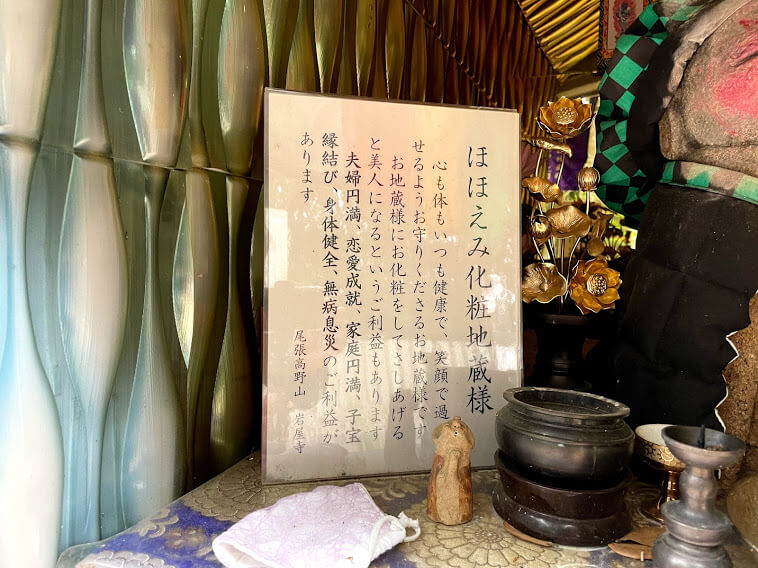 ほほえみ化粧地蔵様
心も体もいつも健康で、笑顔で過
せるようお守りくださるお地蔵様です
お地蔵様にお化粧をしてさしあげる
と美人になるというご利益もあります
夫婦円満、恋愛成就、家庭円満、子宝
縁結び、身体健全、無病息災のご利益が
あります
尾張高野山 岩屋寺